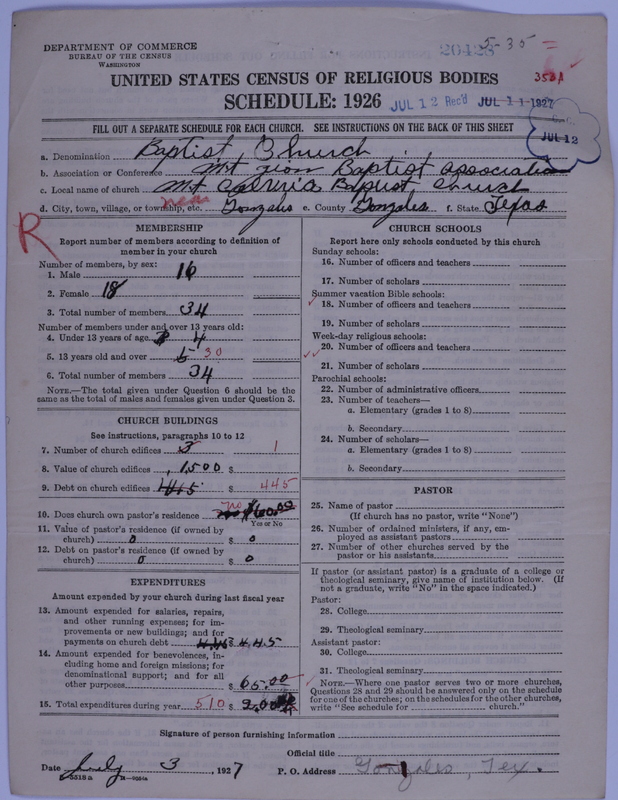 DEPARTMENT OF COMMERCE
BUREAU OF THE CENSUS
WASHINGTON
20428
5-35
UNITED STATES CENSUS OF RELIGIOUS BODIES
353A
SCHEDULE: 1926
JUL 12 Rec'd JUL 11 1927
JUL 12
FILL OUT A SEPARATE SCHEDULE FOR EACH CHURCH. SEE INSTRUCTIONS ON THE BACK OF THIS SHEET
a. Denomination Baptist Church
b. Association or Conference Mt Zion Baptist Association
c. Local name of church Mt Baptist Church
d. City, town, village, or township, etc. Gonzales e. County Gonzales f. State Texas
R
MEMBERSHIP
Report number of members according to definition of
member in your church
Number of members, by sex:
1. Male 16
2. Female 18
3. Total number of members 34
Number of members under and over 13 years old:
4. Under 13 years of age 4
5. 13 years old and over 30
6. Total number of members 34
NOTE.—The total given under Question 6 should be the
same as the total of males and females given under Question 3.
CHURCH BUILDINGS
See instructions, paragraphs 10 to 12
7. Number of church edifices 1
8. Value of church edifices 1,500 $
9. Debt on church edifices 445 $ 445
10. Does church own pastor's residence no
Yes or No
11. Value of pastor's residence (if owned by
church) 0 $ 0
12. Debt on pastor's residence (if owned by
church) 0 $ 0
EXPENDITURES
Amount expended by your church during last fiscal year
13. Amount expended for salaries, repairs,
and other running expenses; for im-
provements or new buildings; and for
payments on church debt $ 445
14. Amount expended for benevolences, in-
cluding home and foreign missions; for
denominational support; and for all
other purposes $ 65.00
15. Total expenditures during year 510 $
CHURCH SCHOOLS
Report here only schools conducted by this church
Sunday schools:
16. Number of officers and teachers
17. Number of scholars
Summer vacation Bible schools:
18. Number of officers and teachers
19. Number of scholars
Week-day religious schools:
20. Number of officers and teachers
21. Number of scholars
Parochial schools:
22. Number of administrative officers
23. Number of teachers—
a. Elementary (grades 1 to 8)
b. Secondary
24. Number of scholars—
a. Elementary (grades 1 to 8)
b. Secondary
PASTOR
25. Name of pastor
(If church has no pastor, write "None")
26. Number of ordained ministers, if any, em-
ployed as assistant pastors
27. Number of other churches served by the
pastor or his assistants
If pastor (or assistant pastor) is a graduate of a college or
theological seminary, give name of institution below. (If
not a graduate, write "No" in the space indicated.)
Pastor:
28. College
29. Theological seminary
Assistant pastor:
30. College
31. Theological seminary
NOTE.—Where one pastor serves two or more churches,
Questions 28 and 29 should be answered only on the schedule
for one of the churches; on the schedules for the other churches,
write "See schedule for church."
Signature of person furnishing information
Official title
Date July 3, 1927 P. O. Address Gonzales, Tex.